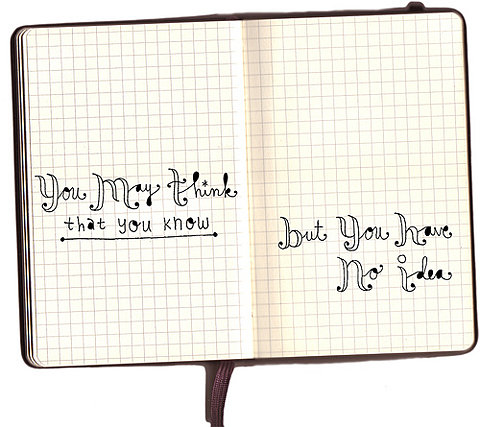 You May think
that you know
but You have
No idea